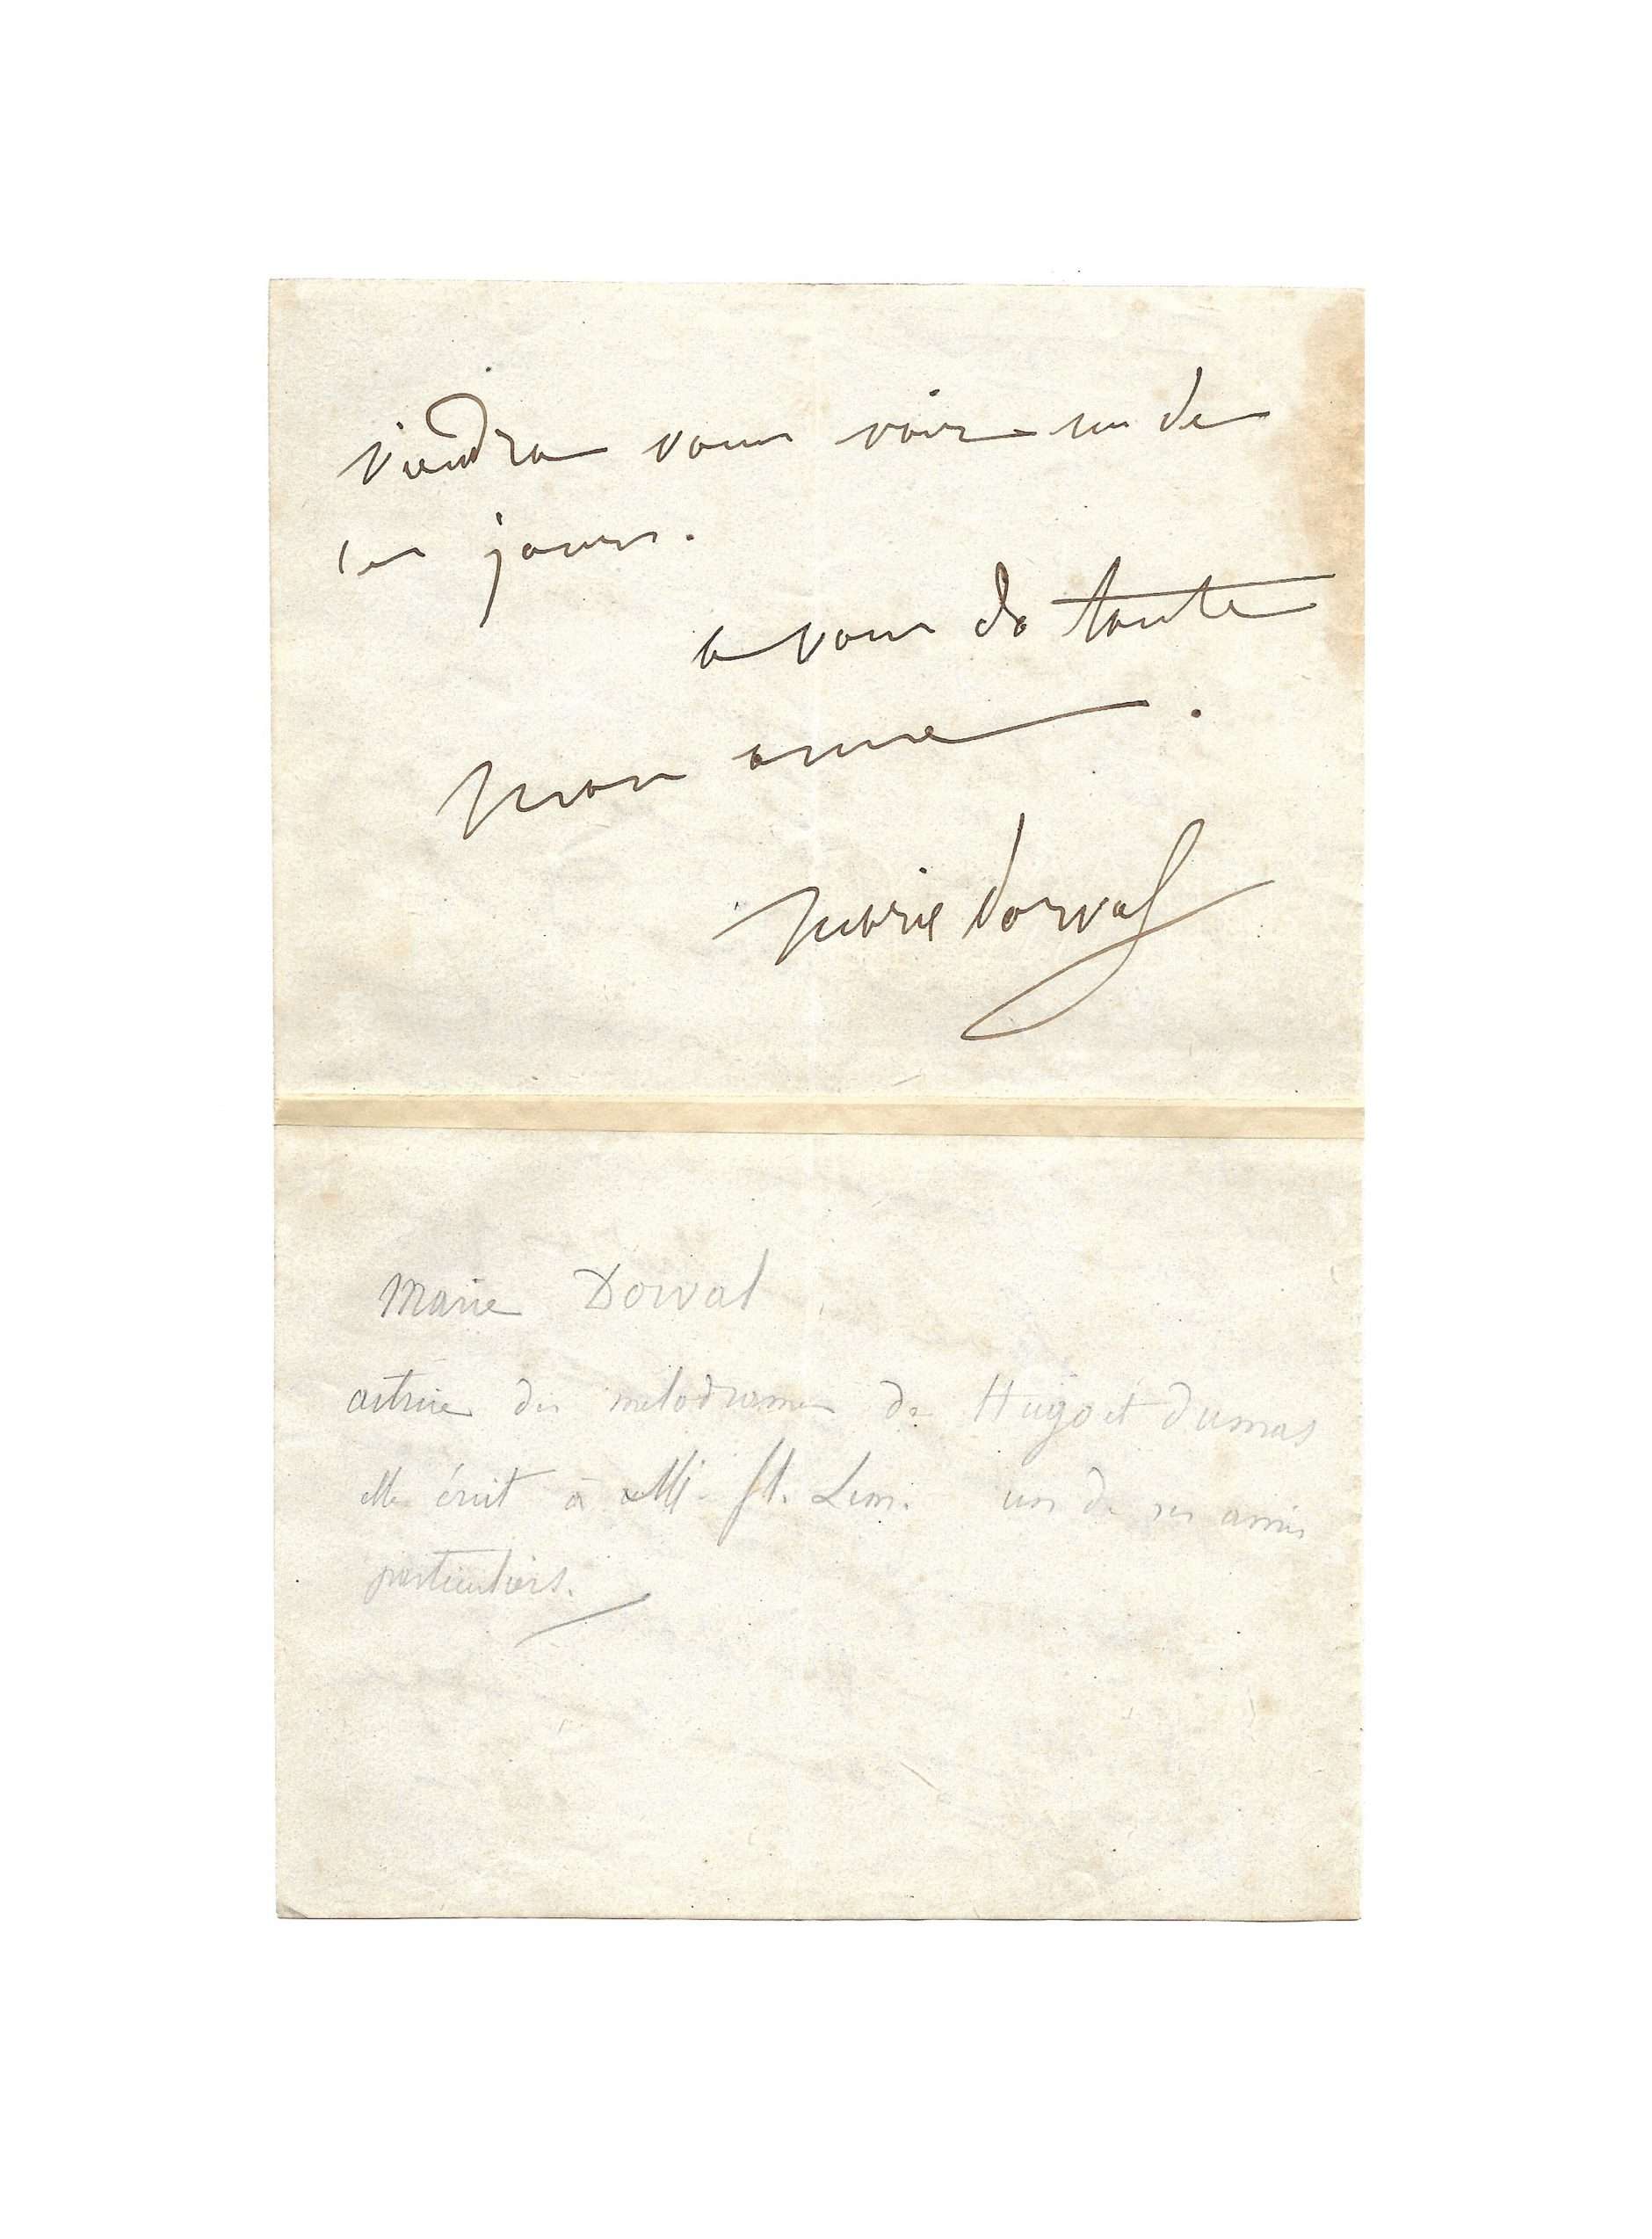 viendra vous voir un de
ces jours.
a vous de toute
mon ame.
Marie dorval
Marie Dorval
actrice des mélodrames de Hugo et Dumas
elle écrit à M. St. un de ses amis
particuliers.